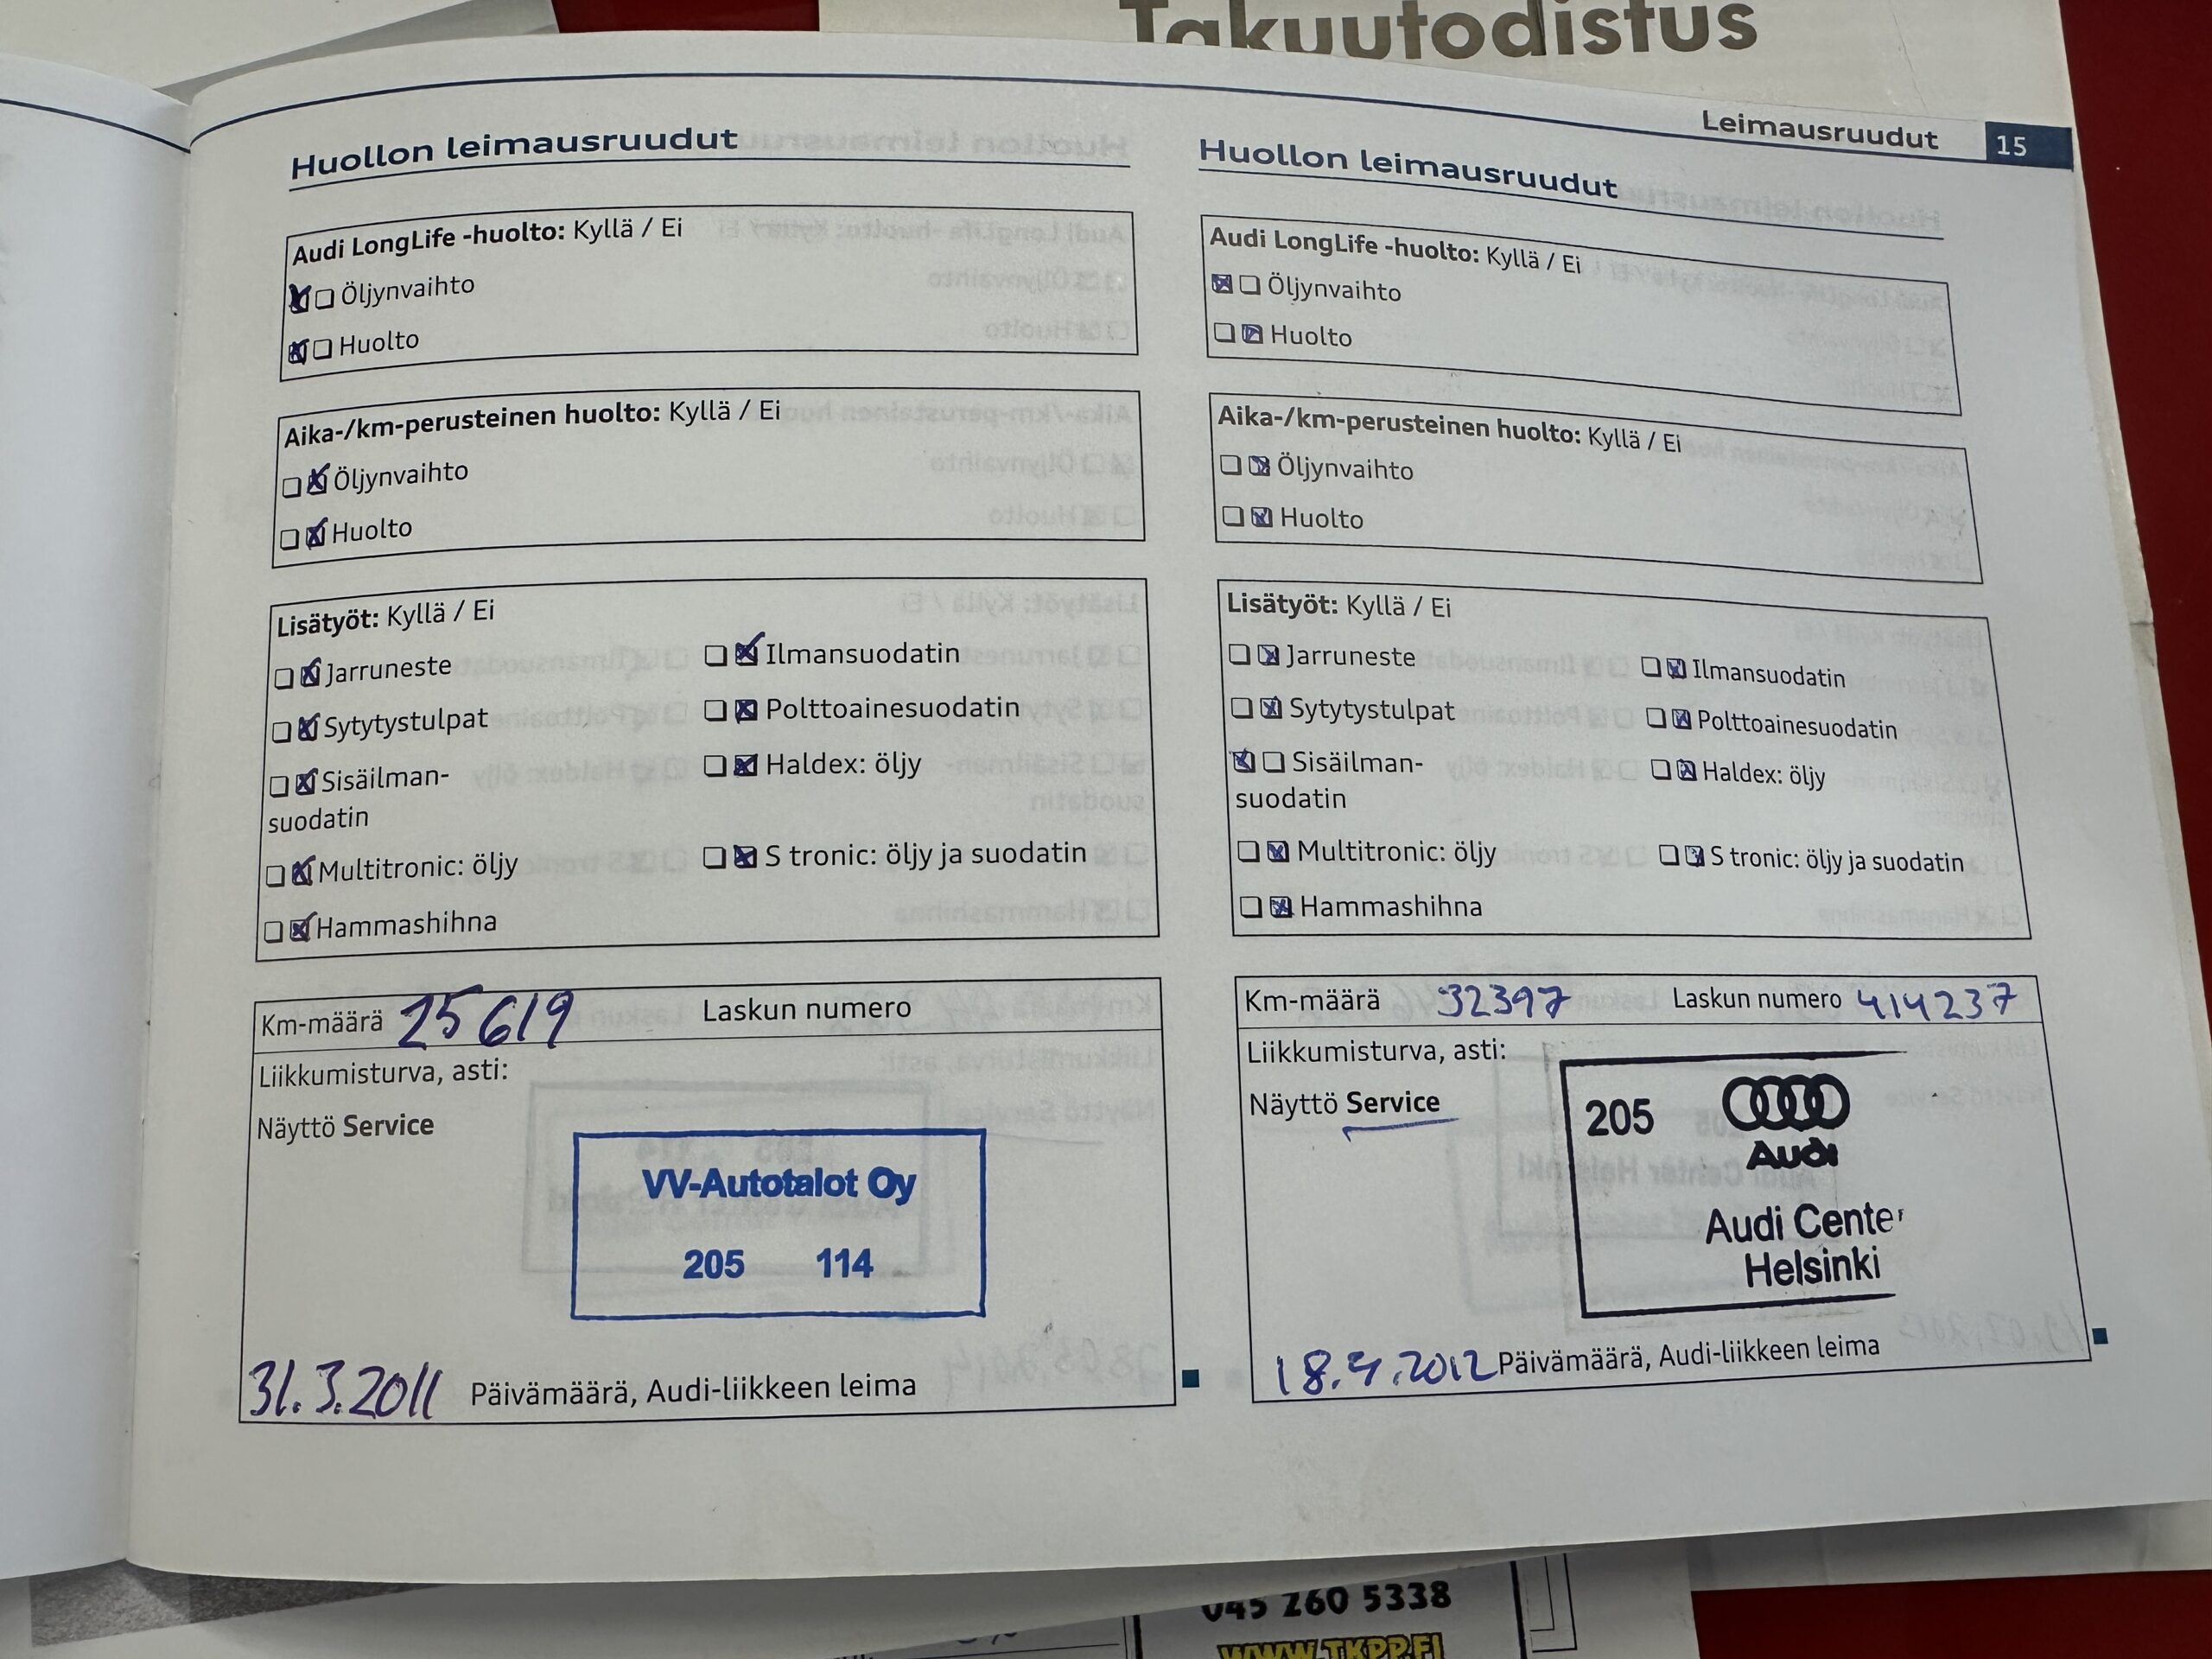 Takuutodistus
Leimausruudut 15
Huollon leimausruudut
Audi LongLife -huolto: Kyllä / Ei
Öljynvaihto
Huolto
Aika-/km-perusteinen huolto: Kyllä / Ei
Öljynvaihto
Huolto
Lisätyöt: Kyllä / Ei
Jarruneste
Ilmansuodatin
Sytytystulpat
Polttoainesuodatin
Sisäilman-
suodatin
Haldex: öljy
Multitronic: öljy
S tronic: öljy ja suodatin
Hammashihna
Km-määrä 25619 Laskun numero
Liikkumisturva, asti:
Näyttö Service
VV-Autotalot Oy
205 114
31.3.2011 Päivämäärä, Audi-liikkeen leima
Huollon leimausruudut
Audi LongLife -huolto: Kyllä / Ei
Öljynvaihto
Huolto
Aika-/km-perusteinen huolto: Kyllä / Ei
Öljynvaihto
Huolto
Lisätyöt: Kyllä / Ei
Jarruneste
Ilmansuodatin
Sytytystulpat
Polttoainesuodatin
Sisäilman-
suodatin
Haldex: öljy
Multitronic: öljy
S tronic: öljy ja suodatin
Hammashihna
Km-määrä 32397 Laskun numero 414237
Liikkumisturva, asti:
Näyttö Service
205
Audi
Audi Center
Helsinki
18.4.2012 Päivämäärä, Audi-liikkeen leima
045 260 5338
WWW.TKPP.FI